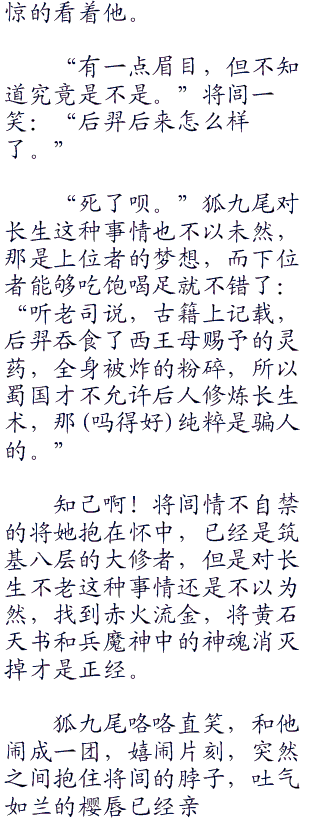 惊的看着他。
“有一点眉目，但不知
道究竟是不是。”将闾一
笑：“后羿后来怎么样
了。”
“死了呗。”狐九尾对
长生这种事情也不以未然，
那是上位者的梦想，而下位
者能够吃饱喝足就不错了：
“听老司说，古籍上记载，
后羿吞食了西王母赐予的灵
药，全身被炸的粉碎，所以
蜀国才不允许后人修炼长生
术，那(吗得好)纯粹是骗人
的。”
知己啊！将闾情不自禁
的将她抱在怀中，已经是筑
基八层的大修者，但是对长
生不老这种事情还是不以为
然，找到赤火流金，将黄石
天书和兵魔神中的神魂消灭
掉才是正经。
狐九尾咯咯直笑，和他
闹成一团，嬉闹片刻，突然
之间抱住将闾的脖子，吐气
如兰的樱唇已经亲